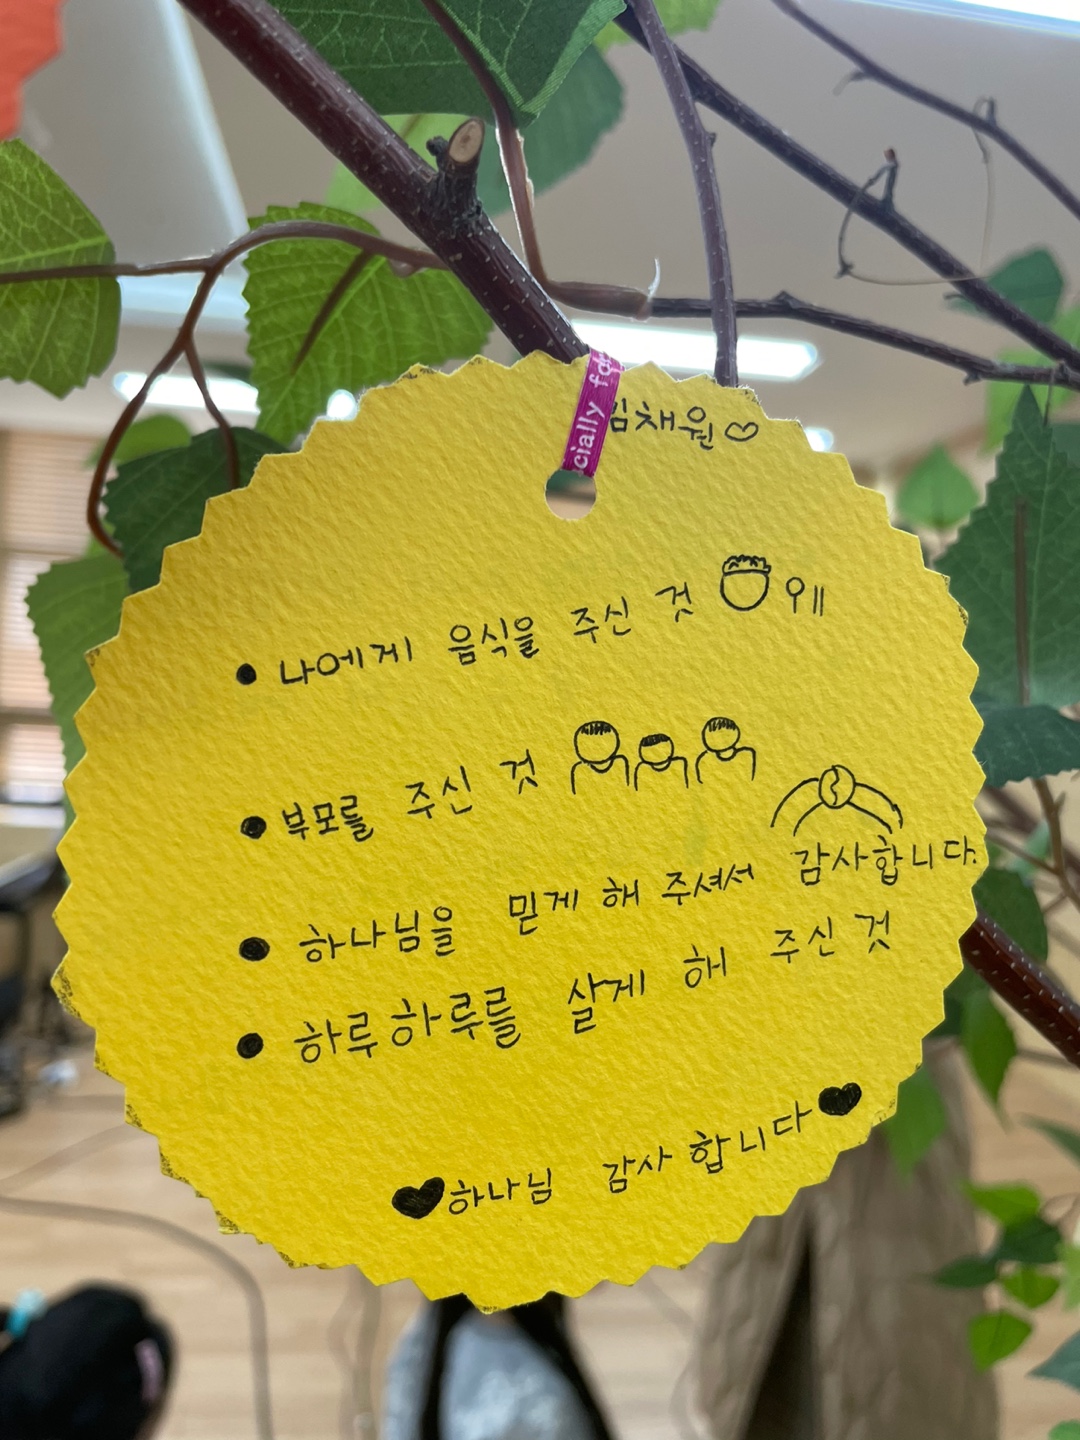 cially for
김채원
나에게 음식을 주신 것
부모를 주신 것
하나님을 믿게 해 주셔서 감사합니다.
하루하루를 살게 해 주신 것
하나님 감사합니다